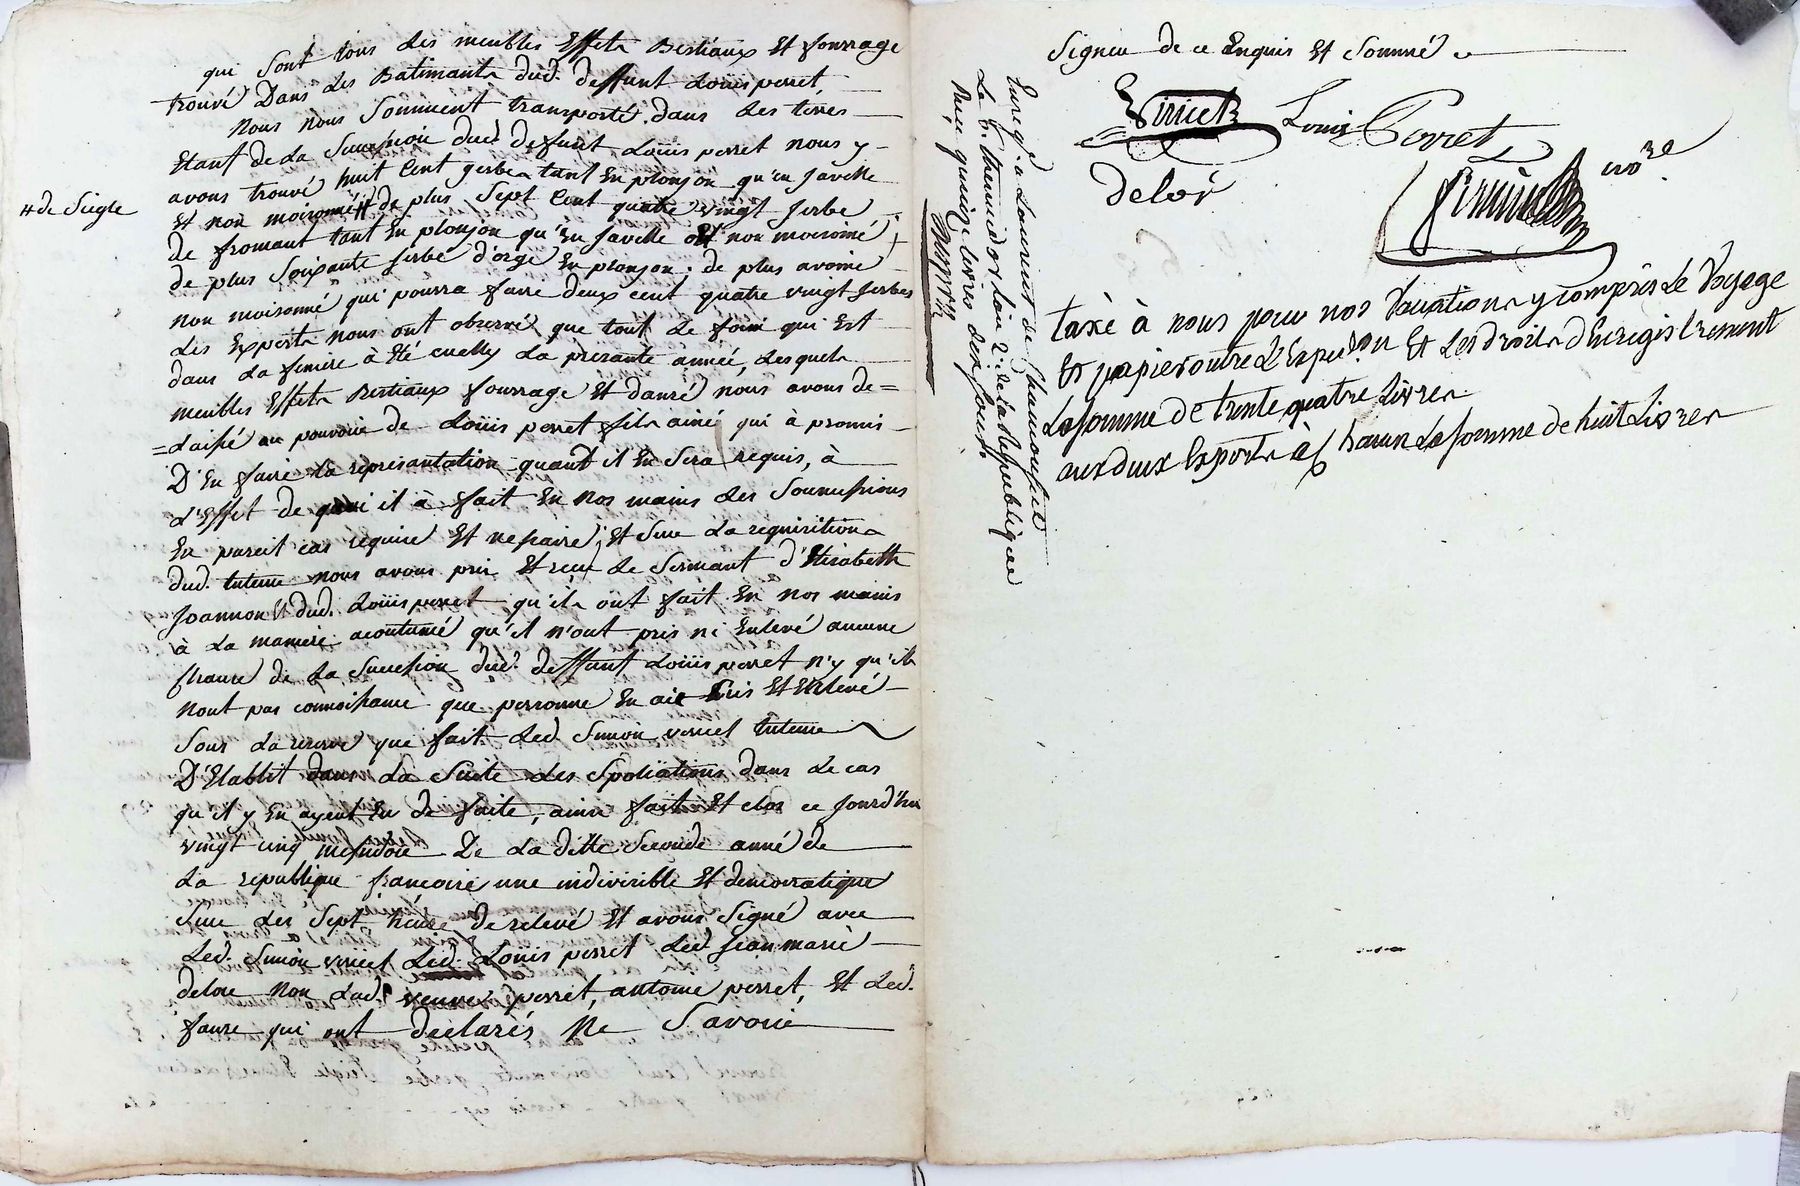 qui sont tous les meubles Effets Bestiaux Et fourrage
trouvé Dans les Batimants dud. deffunt Loüis perret,
Nous nous sommient transporté dans les terres
Etant de La Succession dud. defunt Loüis perret nous y
avons trouvé huit Cent gerbes tant En plonjon qu'en Javelle
# de Seigle
Et non moisonné # de plus Sept Cent quatre vingt Jerbe
de fromant tant En plonjon qu'En Javelle Et non moisonné
de plus Soixante Jerbe d'orge En plonjon, de plus avoine
non moisonné qui pourra faire deux cent quatre vingt Jerbes
Les Experts nous ont observé que tout Le foin qui Est
dans La feniere à Eté cuelly La presante année, Lesquels
meubles Effets Bestiaux fourrage Et danré nous avons de=
=Laissé au pouvoir de Loüis perret fils ainé qui à promis
D'En faire La représantation quant il En Sera requis, à
L'Effet de quoi il à fait En Nos mains Les Soumissions
En pareil cas requise Et nessaire, Et Sur La requisitions
dud. tuteur nous avons pris Et reçu Le Sermant d'Elisabeth
Joannon Et dud. Loüis perret qu'ils ont fait En Nos mains
à La maniere acoutumé qu'il n'ont pris ni Enlevé aucune
chause de La Succession dud. deffunt Loüis perret n'y qu'ils
Nont pas connoissance que personne En aie Pris Et Enlevé
Sous La reserve que fait Led. Simon viricel tuteur
D'Etablit dans La Suite Les Spoliations dans Le cas
qu'il y En ayent Eu de faite, ainsi fait Et clos ce Jourd'hui
vingt cinq Messidore De La ditte Seconde anné de
La république françoise une indivisible Et démocratique
Sur Les Sept heure de relevé Et avons Signé avec
Led. Simon viricel Led. Loüis perret Led. Jean marie
delore Non Lad. veuve perret, antoine perret, Et Led.
faure qui ont declarés Ne Savoir
Signer de ce Enquis Et Sommé
Viricel Louis Perret
delor
taxé à nous pour nos Vacations y compris Le Voyage
Et papier outre L'Expedion Et Les droits d'Enregistrement
La somme de trente quatre Livres
aux deux Experts à Chacun La somme de huit Livres
Enregé. a
Le 6. thermidor Lan 2. de La Republique
Reçu quinze Livres dix sous